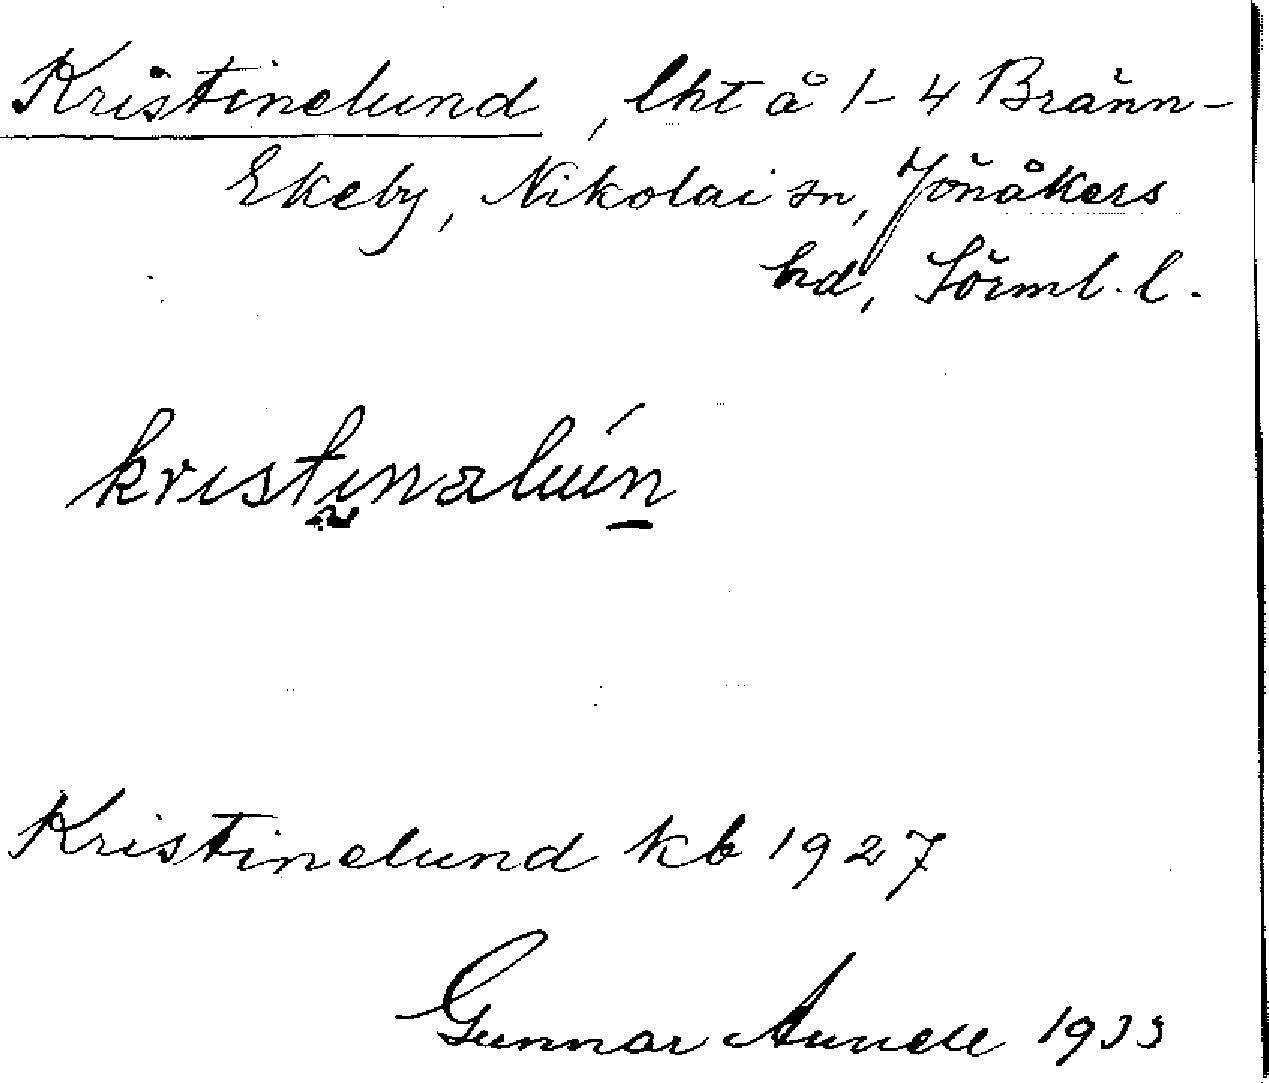 Kristinelund, lht å 1-4 Bränn-
Ekeby, Nikolai sn, Jönåkers
hd, Sörml. l.
kristinəluń
Kristinelund kb 1927
Gunnar 1933